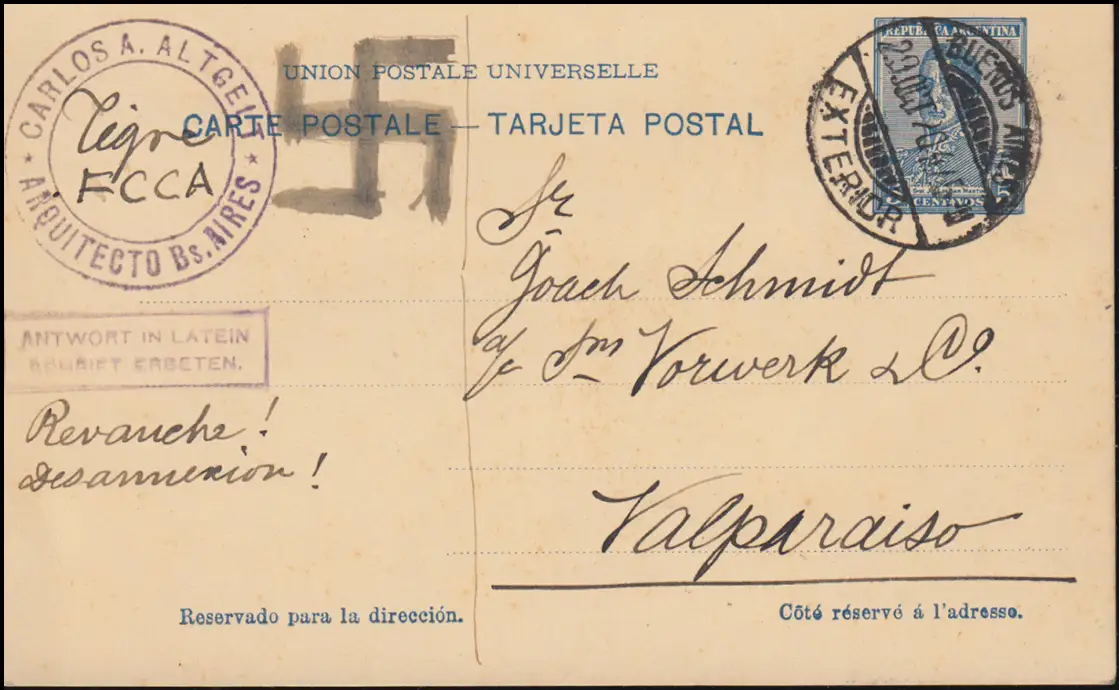 CARLOS A. ALTGELT
ARQUITECTO Bs. AIRES
Tigre
FCCA
UNION POSTALE UNIVERSELLE
CARTE POSTALE — TARJETA POSTAL
REPUBLICA ARGENTINA
CENTAVOS
BUENOS AIRES
EXTERIOR
Sr
Joach Schmidt
Vorwerk & Co.
Valparaiso
ANTWORT IN LATEIN
SCHRIFT ERBETEN.
Revanche!
Desannexion!
Reservado para la dirección.
Côté réservé á l'adresse.